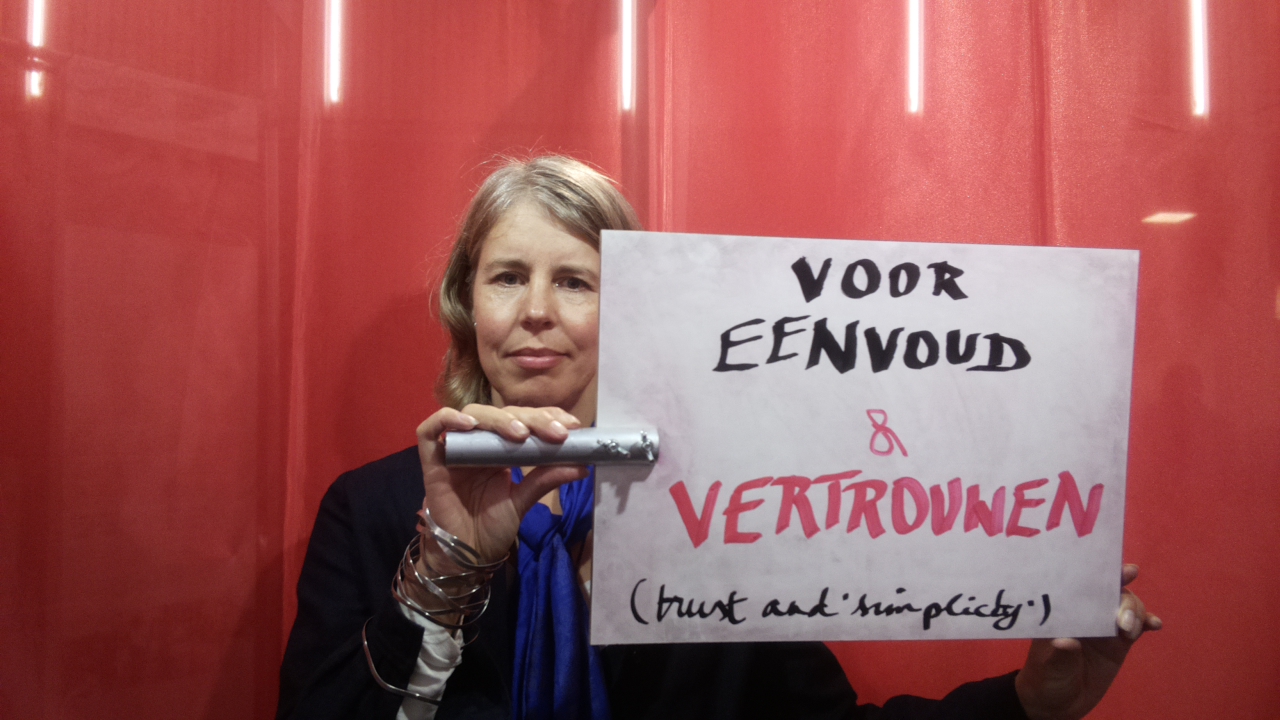 VOOR
EENVOUD
&
VERTROUWEN
(trust and 'simplicity')